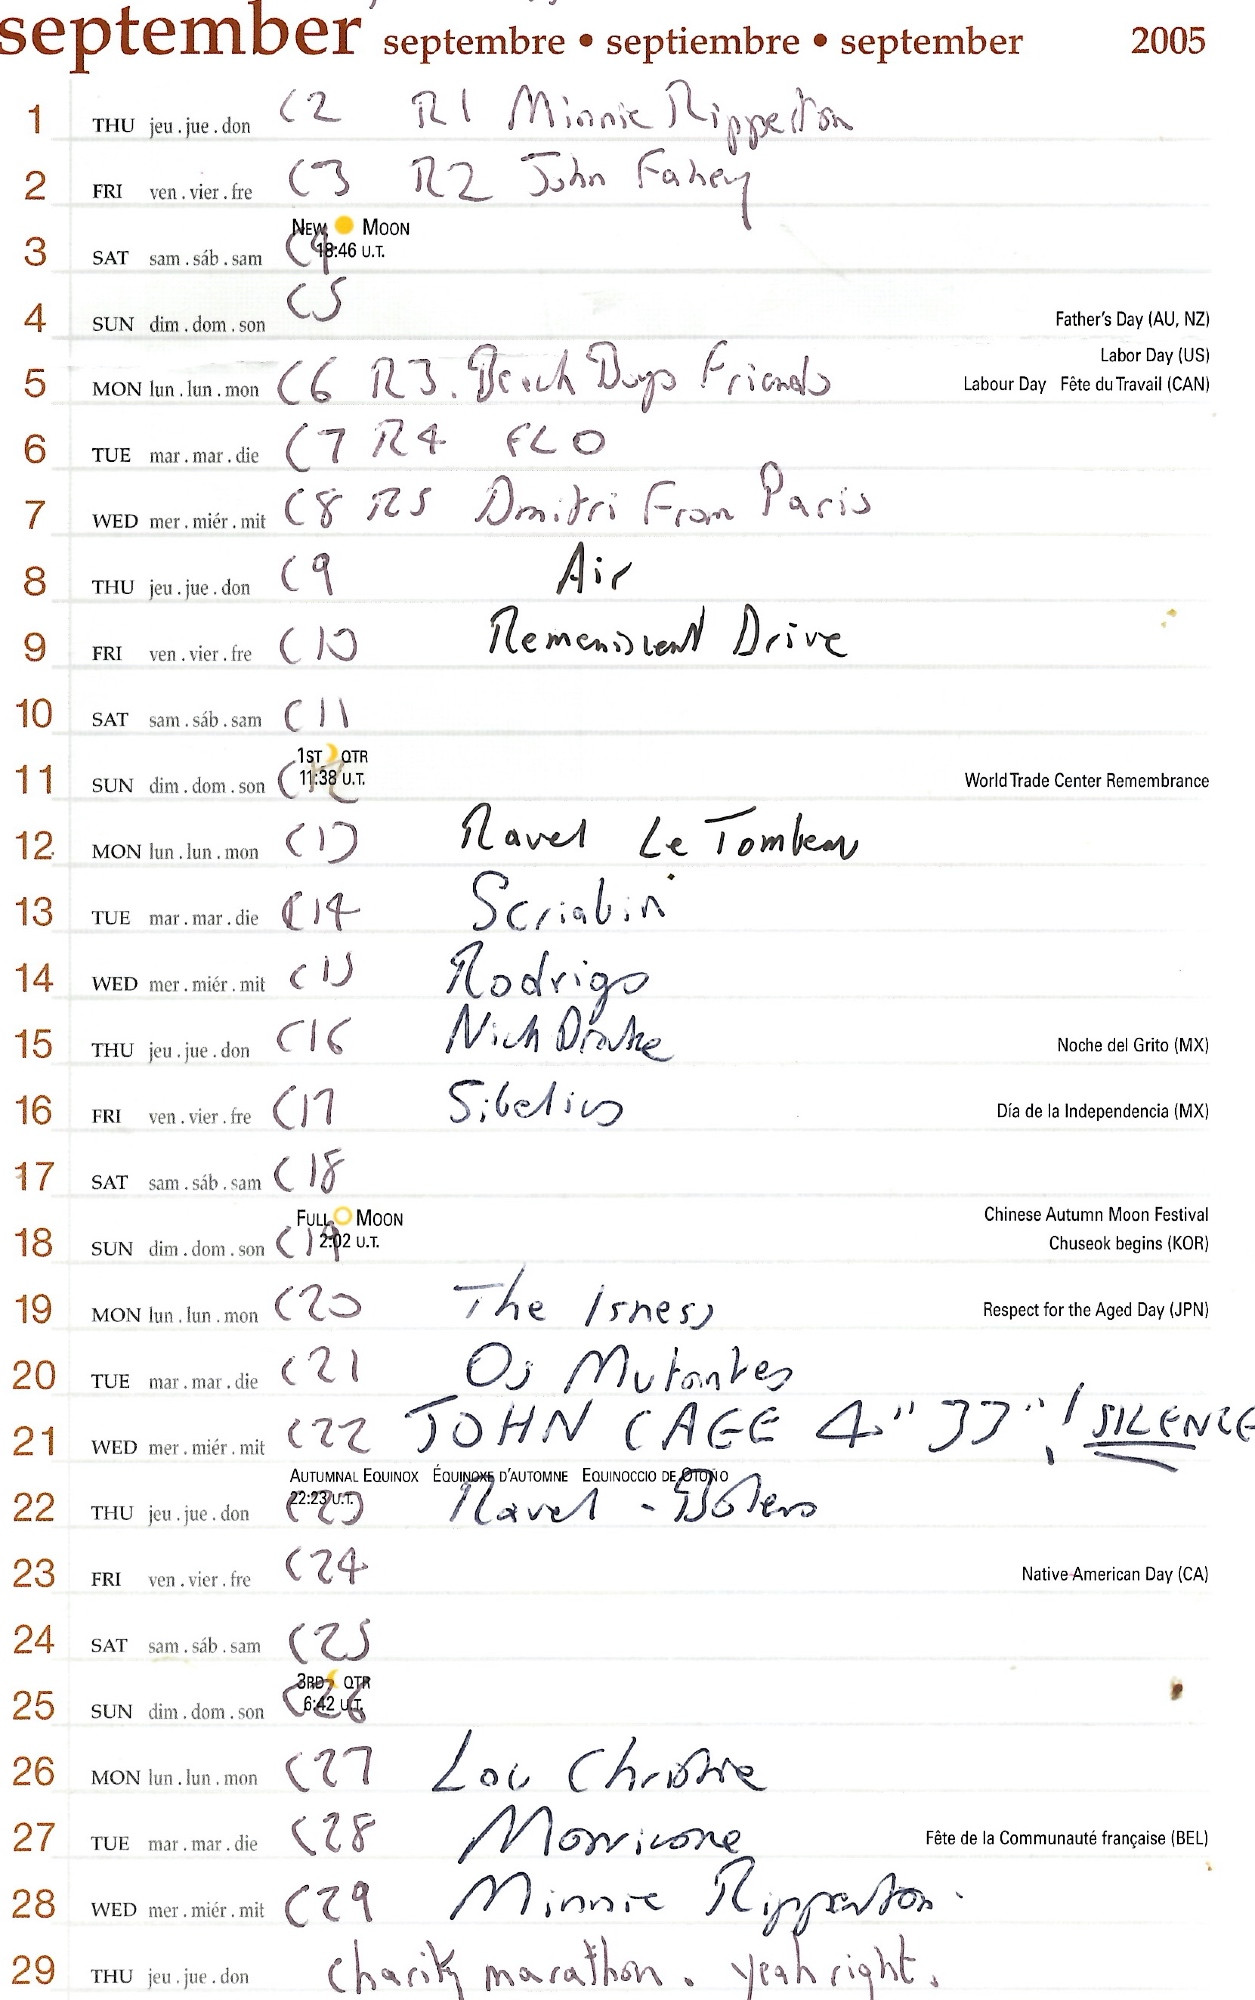 september septembre • septiembre • september 2005
1 THU jeu . jue . don C2 R1 Minnie Ripperton
2 FRI ven . vier . fre C3 R2 John Fahey
NEW MOON
3 SAT sam . sáb . sam C4 18:46 U.T.
4 SUN dim . dom . son C5 Father's Day (AU, NZ)
Labor Day (US)
5 MON lun . lun . mon C6 R3. Beach Boys Friends Labour Day Fête du Travail (CAN)
6 TUE mar . mar . die C7 R4 ELO
7 WED mer . miér . mit C8 R5 Dmitri From Paris
8 THU jeu . jue . don C9 Air
9 FRI ven . vier . fre C10 Remeniscent Drive
10 SAT sam . sáb . sam C11
1ST QTR
11 SUN dim . dom . son C12 11:38 U.T. World Trade Center Remembrance
12 MON lun . lun . mon C13 Ravel Le Tombeau
13 TUE mar . mar . die C14 Scriabin
14 WED mer . miér . mit C15 Rodrigo
15 THU jeu . jue . don C16 Nick Drake Noche del Grito (MX)
16 FRI ven . vier . fre C17 Sibelius Día de la Independencia (MX)
17 SAT sam . sáb . sam C18
FULL MOON Chinese Autumn Moon Festival
18 SUN dim . dom . son C19 2:02 U.T. Chuseok begins (KOR)
19 MON lun . lun . mon C20 The Isness Respect for the Aged Day (JPN)
20 TUE mar . mar . die C21 Os Mutantes
21 WED mer . miér . mit C22 JOHN CAGE 4" 33"! SILENCE
AUTUMNAL EQUINOX ÉQUINOXE D'AUTOMNE EQUINOCCIO DE OTOÑO
22 THU jeu . jue . don C23 22:23 U.T. Ravel - Bolero
23 FRI ven . vier . fre C24 Native American Day (CA)
24 SAT sam . sáb . sam C25
3RD QTR
25 SUN dim . dom . son C26 6:42 U.T.
26 MON lun . lun . mon C27 Lou Christie
27 TUE mar . mar . die C28 Morricone Fête de la Communauté française (BEL)
28 WED mer . miér . mit C29 Minnie Ripperton.
29 THU jeu . jue . don charity marathon. yeah right.